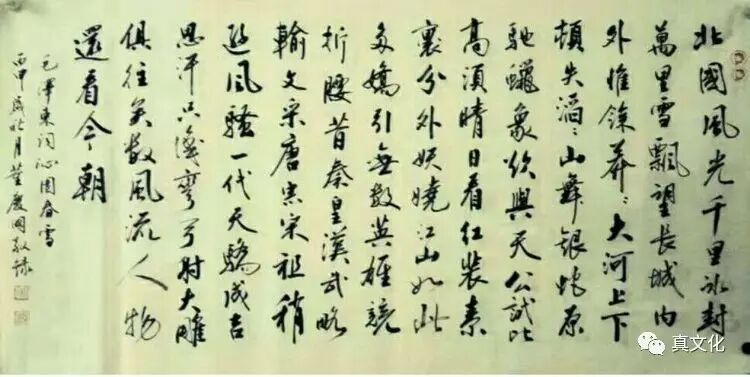 北國風光千里冰封
萬里雪飄望長城内
外惟餘莽々大河上下
頓失滔々山舞銀蛇原
馳蠟象欲與天公試比
高須晴日看红裝素
裹分外妖嬈江山如此
多嬌引無數英雄競
折腰昔秦皇漢武略
輸文采唐宗宋祖稍
遜風騷一代天驕成吉
思汗只識彎弓射大雕
俱往矣數風流人物
還看今朝
毛澤東詞沁園春雪
丙申歲月董慶國敬録
真文化